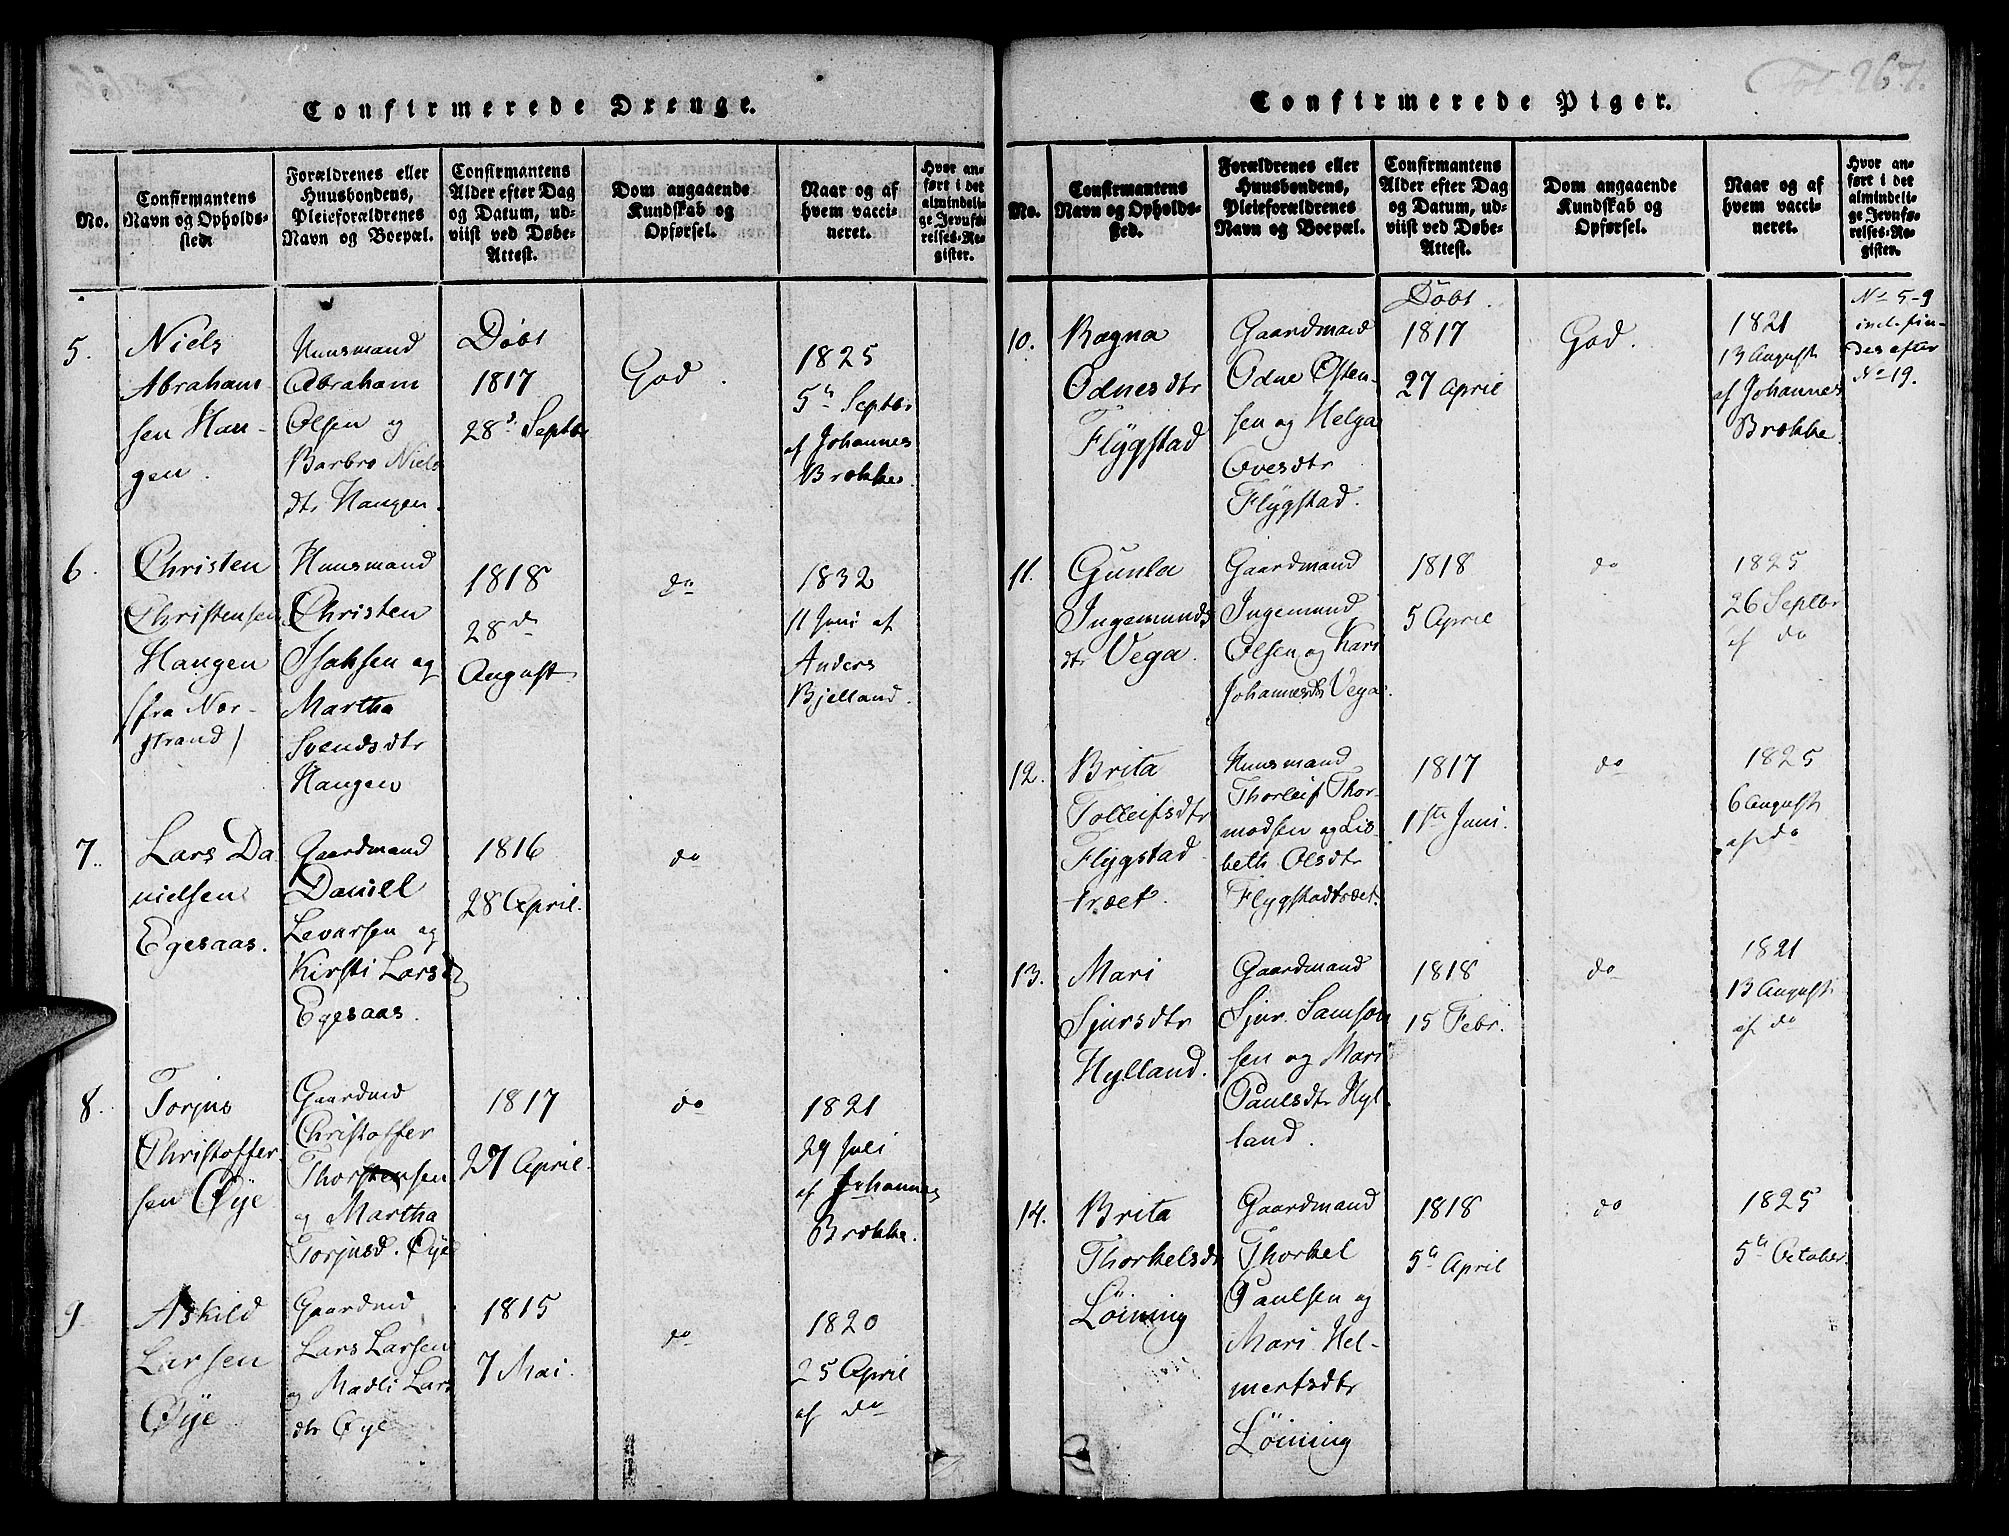 Confirmerede Drenge.
No.
Confirmantens
Navn og Opholds-
sted.
Forældrenes eller
Huusbondens,
Pleieforældrenes
Navn og Boepæl.
Confirmantens
Alder efter Dag
og Datum, ud-
viist ved Døbe-
Attest.
Dom angaaende
Kundskab og
Opførsel.
Naar og af
hvem vacci-
neret.
Hvor an-
ført i det
almindeli-
ge Jevnfø-
relses-Re-
gister.
5.
Niels
Abraham-
sen Hau-
gen.
Huusmand
Abraham
Olsen og
Barbro Niels
dtr Haugen.
Døbt
1817
28d Septbr
God.
1825
5te Septbr
af Johannes
Brække.
6.
Christen
Christensen
Haugen
(fra Nær-
strand)
Huusmand
Christen
Isaksen og
Martha
Svendsdtr
Haugen
1818
28de
August
do
1832
11 Juni af
Anders
Bjelland.
7.
Lars Da
nielsen
Egesaas.
Gaardmand
Daniel
Levarsen og
Kirsti Larsd
Egesaas.
1816
28 April.
do
8.
Torjus
Christoffer-
sen Øye
Gaardmd
Christoffer
Thorstensen
og Martha
Torjusd. Øye
1817
27 April.
do
1821
29 Juli
af Johannes
Brække.
9
Askild
Larsen
Øye
Gaardmd
Lars Larsen
og Madli Lars
dtr Øye
1815
7 Mai.
do
1820
25 April
af do
Fol 267.
Confirmerede Piger.
No.
Confirmantens
Navn og Opholds-
sted.
Forældrenes eller
Huusbondens,
Pleieforældrenes
Navn og Boepæl.
Confirmantens
Alder efter Dag
og Datum, ud-
viist ved Døbe-
Attest.
Dom angaaende
Kundskab og
Opførsel.
Naar og af
hvem vacci-
neret.
Hvor an-
ført i det
almindeli-
ge Jevnfø-
relses-Re-
gister.
10.
Ragna
Odnesdtr
Flygstad
Gaardmand
Odne Østen-
sen og Helga
Ovesdtr
Flygstad.
Døbt.
1817
27 April
God.
1821
13 August
af Johannes
Brække
No 5-9
incl. fin-
des efter
No 19.
11.
Gunla
Ingemunds
dtr Vega.
Gaardmand
Ingemund
Olsen og Kari
Johannesdtr Vega.
1818
5 April
do
1825
26 Septbr
af do
12.
Brita
Tolleifsdtr
Flygstad-
træet.
Huusmand
Thorleif Thor-
modsen og Lis-
beth Olsdtr
Flygstadtræet.
1817
1ste Juni.
do
1825
6 August
af do
13.
Mari
Sjursdtr
Hylland.
Gaardmand
Sjur Samson
sen og Mari
Paulsdtr Hyl-
land.
1818
15 Febr.
do
1821
13 August
af do
14.
Brita
Thorkelsdtr
Løining
Gaardmand
Thorkel
Paulsen og
Mari Hel-
mertsdtr
Løining
1818
5te April
do
1825
5te October.